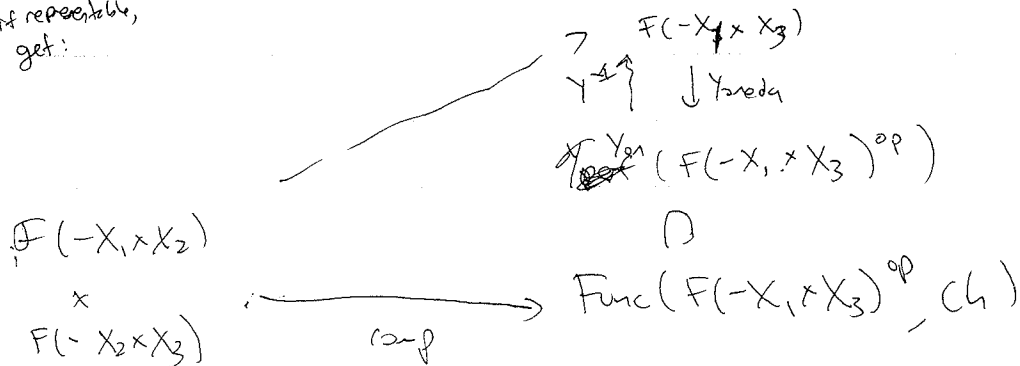 if representable,
get:
F(-X₁ × X₃)
Y⁻¹ ↑ ↓ Yoneda
Yon (F(-X₁ × X₃)^op)
∩
F(-X₁ × X₂)
×
F(-X₂ × X₃)
comp
Func(F(-X₁ × X₃)^op, Ch)